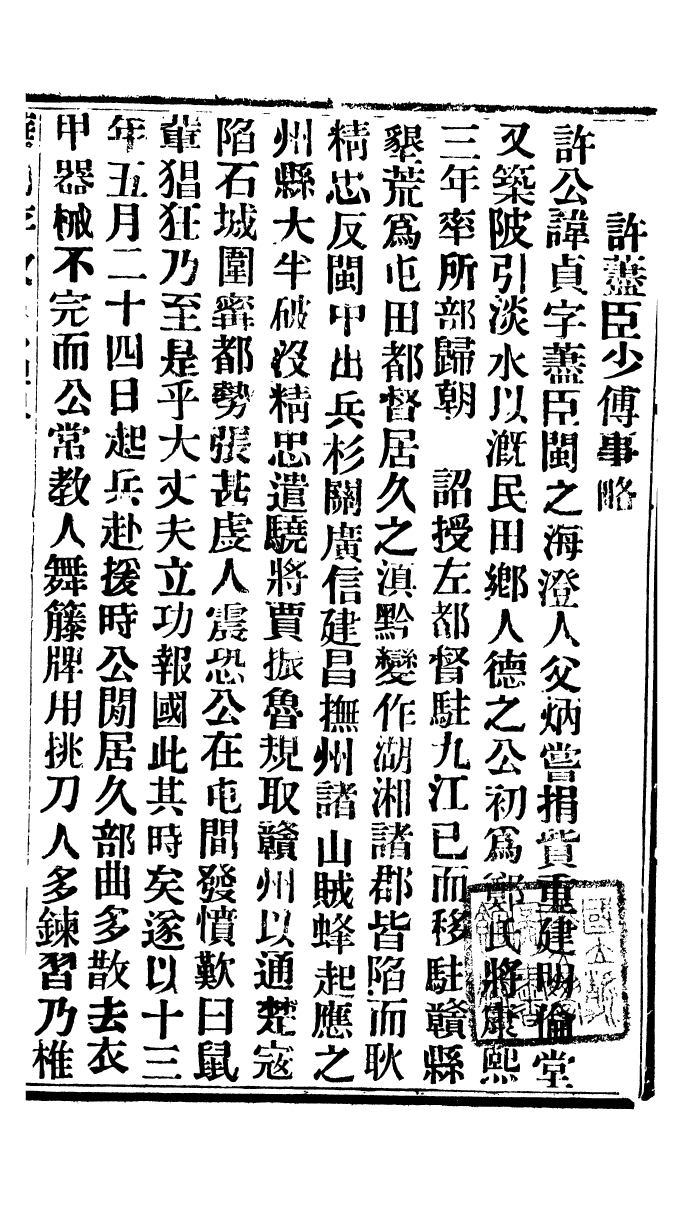 許藎臣少傅事略
許公諱貞字藎臣閩之海澄人父炳嘗捐貲重建明倫堂
又築陂引淡水以溉民田鄉人德之公初爲鄭氏將康熙
三年率所部歸朝　詔授左都督駐九江已而移駐贛縣
墾荒爲屯田都督居久之滇黔變作湖湘諸郡皆陷而耿
精忠反閩中出兵杉關廣信建昌撫州諸山賊蜂起應之
州縣大半破沒精忠遣驍將賈振魯規取贛州以通楚寇
陷石城圍寧都勢張甚虔人震恐公在屯間發憤歎曰鼠
輩猖狂乃至是乎大丈夫立功報國此其時矣遂以十三
年五月二十四日起兵赴援時公閒居久部曲多散去衣
甲器械不完而公常教人舞籐牌用挑刀人多鍊習乃椎